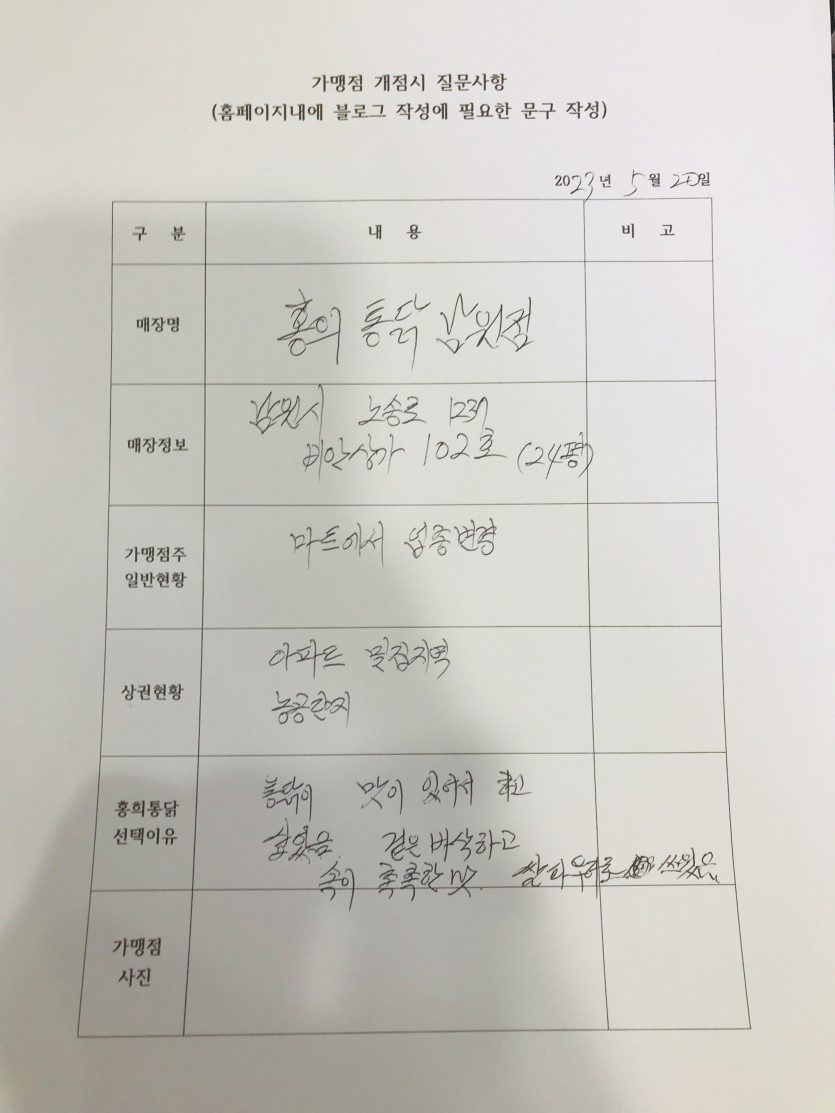 가맹점 개점시 질문사항
(홈페이지내에 블로그 작성에 필요한 문구 작성)
2023년 5월 20일
구 분 내 용 비 고
매장명 홍의 통닭 남원점
매장정보 남원시 노송로 1237
비안상가 102호 (24평)
가맹점주 일반현황 마트에서 업종변경
상권현황 아파트 밀집지역
농공단지
홍희통닭 선택이유 통닭이 맛이 있어서
겉은 바삭하고
속이 촉촉한 맛. 쌀파우더로
가맹점 사진